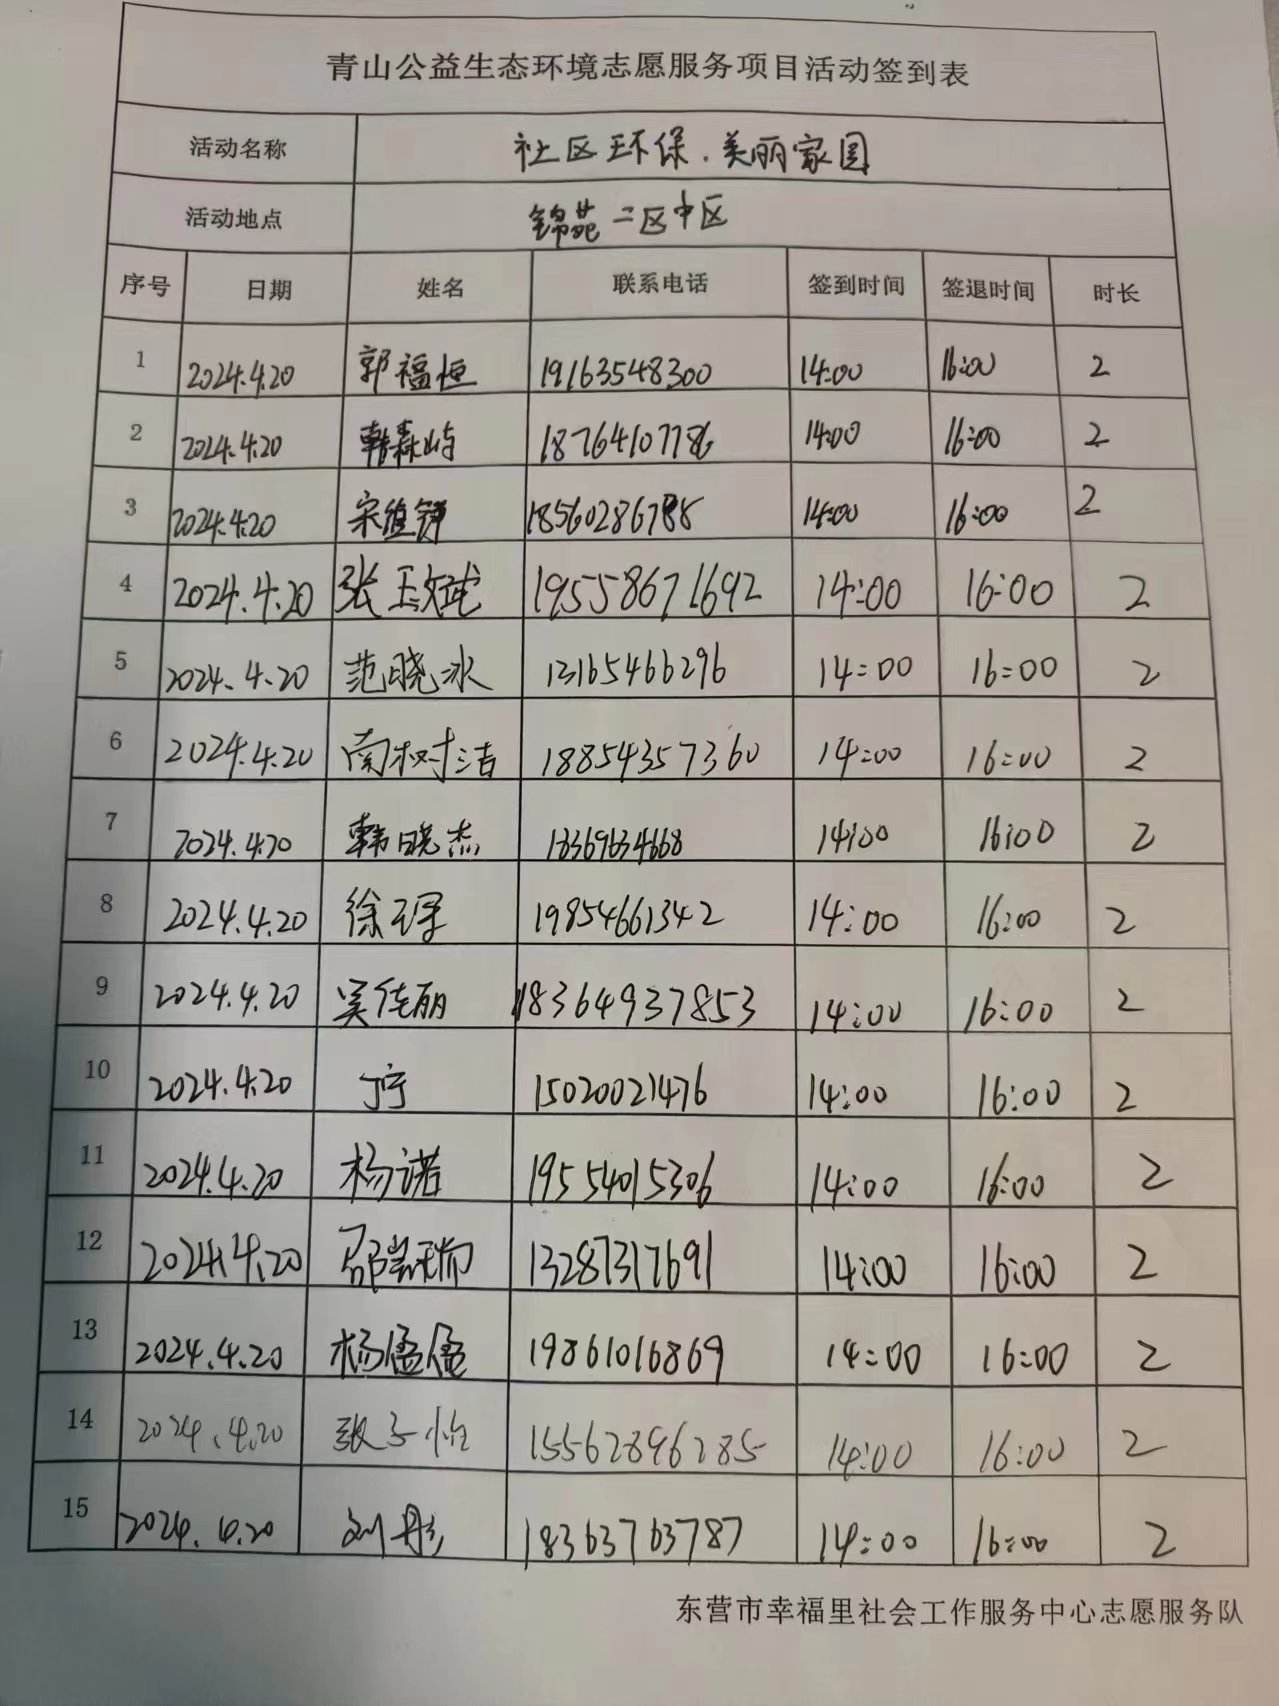 青山公益生态环境志愿服务项目活动签到表
活动名称 社区环保.美丽家园
活动地点 锦苑二区中区
序号 日期 姓名 联系电话 签到时间 签退时间 时长
1 2024.4.20 郭福恒 19163548300 14:00 16:00 2
2 2024.4.20 韩森屿 18764107786 14:00 16:00 2
3 2024.4.20 宋 18560286788 14:00 16:00 2
4 2024.4.20 张玉斌 19558671692 14:00 16:00 2
5 2024.4.20 范晓冰 13165466296 14:00 16:00 2
6 2024.4.20 南树洁 18854357360 14:00 16:00 2
7 2024.4.20 韩晓杰 18369634668 14:00 16:00 2
8 2024.4.20 徐 19854661342 14:00 16:00 2
9 2024.4.20 吴佳丽 18364937853 14:00 16:00 2
10 2024.4.20 丁宁 15020021476 14:00 16:00 2
11 2024.4.20 杨诺 19554015306 14:00 16:00 2
12 2024.4.20 邵瑞 13287317691 14:00 16:00 2
13 2024.4.20 杨孟孟 19861016869 14:00 16:00 2
14 2024.4.20 张子怡 15562896285 14:00 16:00 2
15 2024.4.20 刘彤 18363763787 14:00 16:00 2
东营市幸福里社会工作服务中心志愿服务队